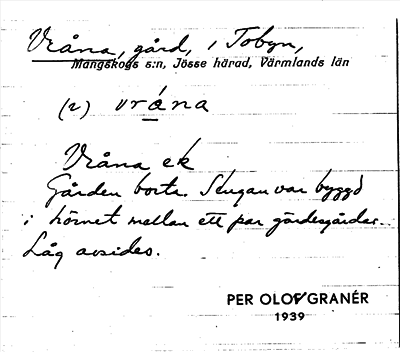 Vråna, gård, i Tobyn,
Mangskogs s:n, Jösse härad, Värmlands län
(2) vrá̱na
Vråna ek
Gården borta. Stugan var byggd
i hörnet mellan ett par gärdesgårdar.
Låg avsides.
PER OLOV GRANÉR
1939